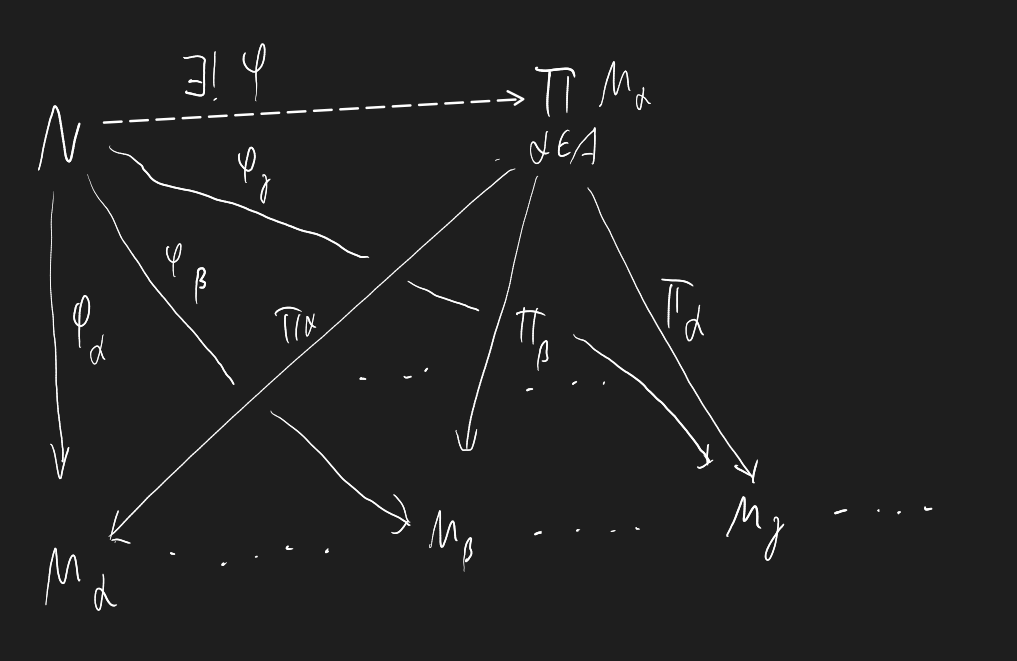 ∃! φ
∏ M_α
α∈A
N
φ_γ
φ_β
φ_α
π_α
π_β
π_α
M_α ..... M_β ..... M_γ .....